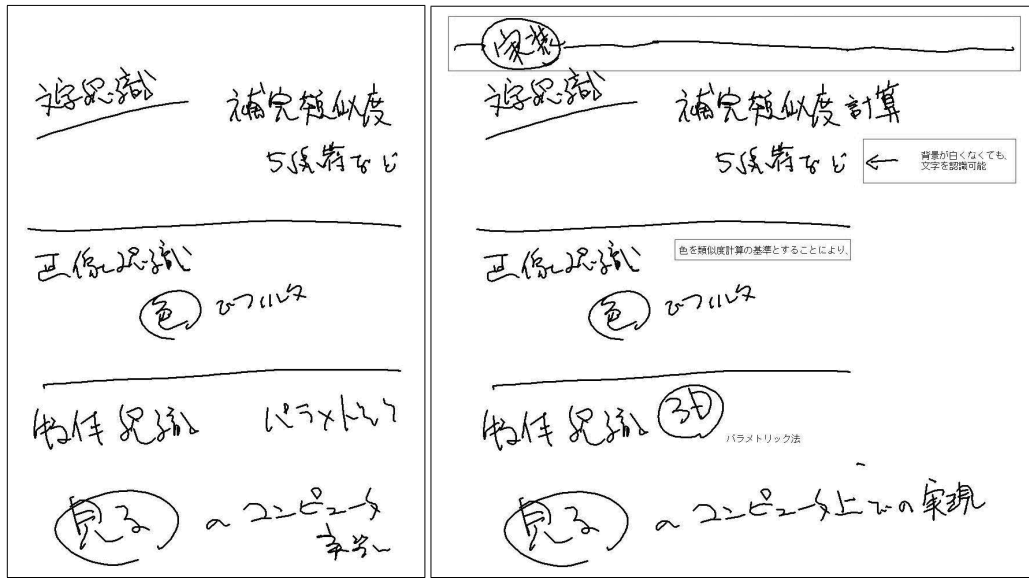 文字認識
補完類似度
など
画像認識
色 でフィルタ
物体認識
見る のコンピュータ
文字認識
補完類似度計算
など ←
背景が白くなくても、
文字を認識可能
画像認識
色を類似度計算の基準とすることにより、
色 でフィルタ
物体認識 3D
パラメトリック法
見る のコンピュータ上での実現